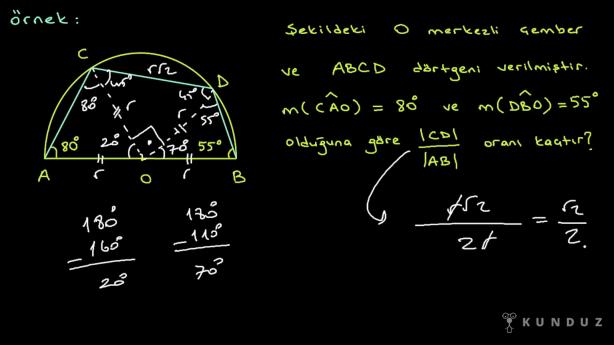 örnek:
Şekildeki O merkezli çember
ve ABCD dörtgeni verilmiştir.
m(CÂO) = 80° ve m(DB̂O) = 55°
olduğuna göre |CD| / |AB| oranı kaçtır?
C
r√2
D
45°
45°
80°
r
r
55°
80°
20°
70°
55°
A
r
O
r
B
180°
- 160°
20°
180°
- 110°
70°
r√2 / 2r = √2 / 2.
KUNDUZ